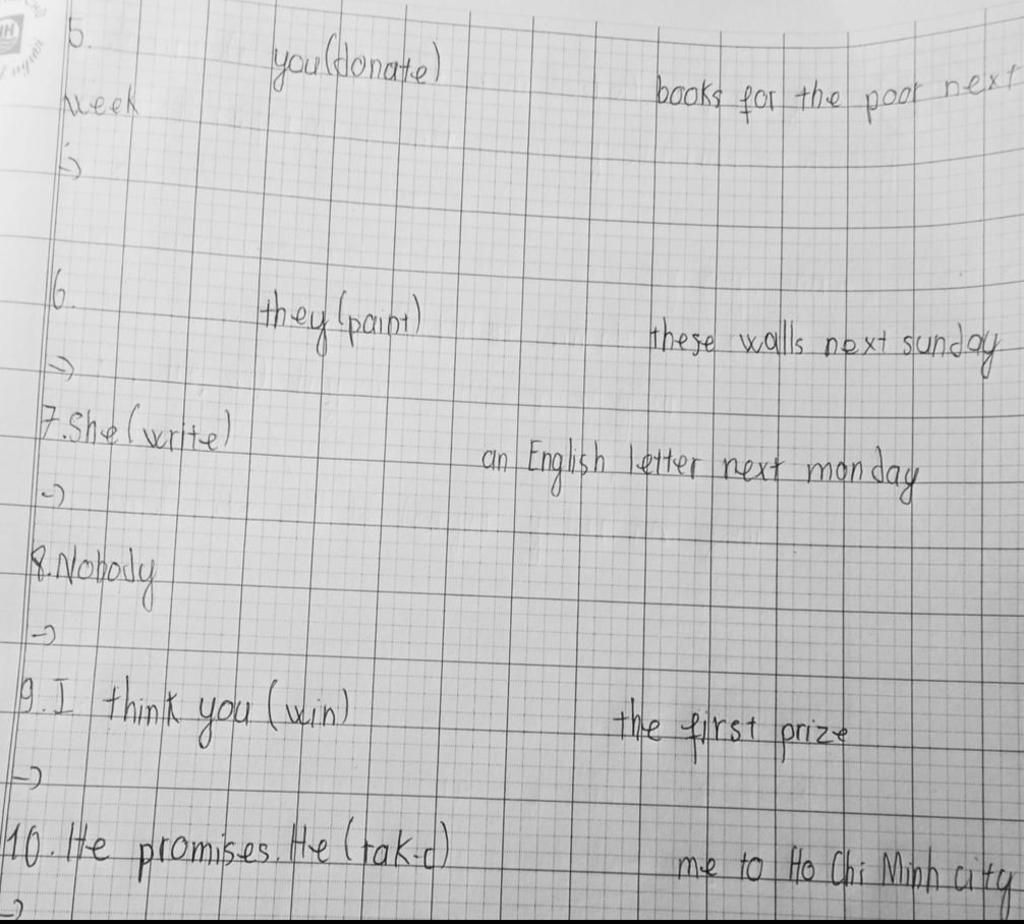 5. you(donate) books for the poor next
week
->
6. they(paint) these walls next sunday
->
7. She(write) an English letter next monday
->
8. Nobody
->
9. I think you (win) the first prize
->
10. He promises. He (tak-d) me to Ho Chi Minh city
->